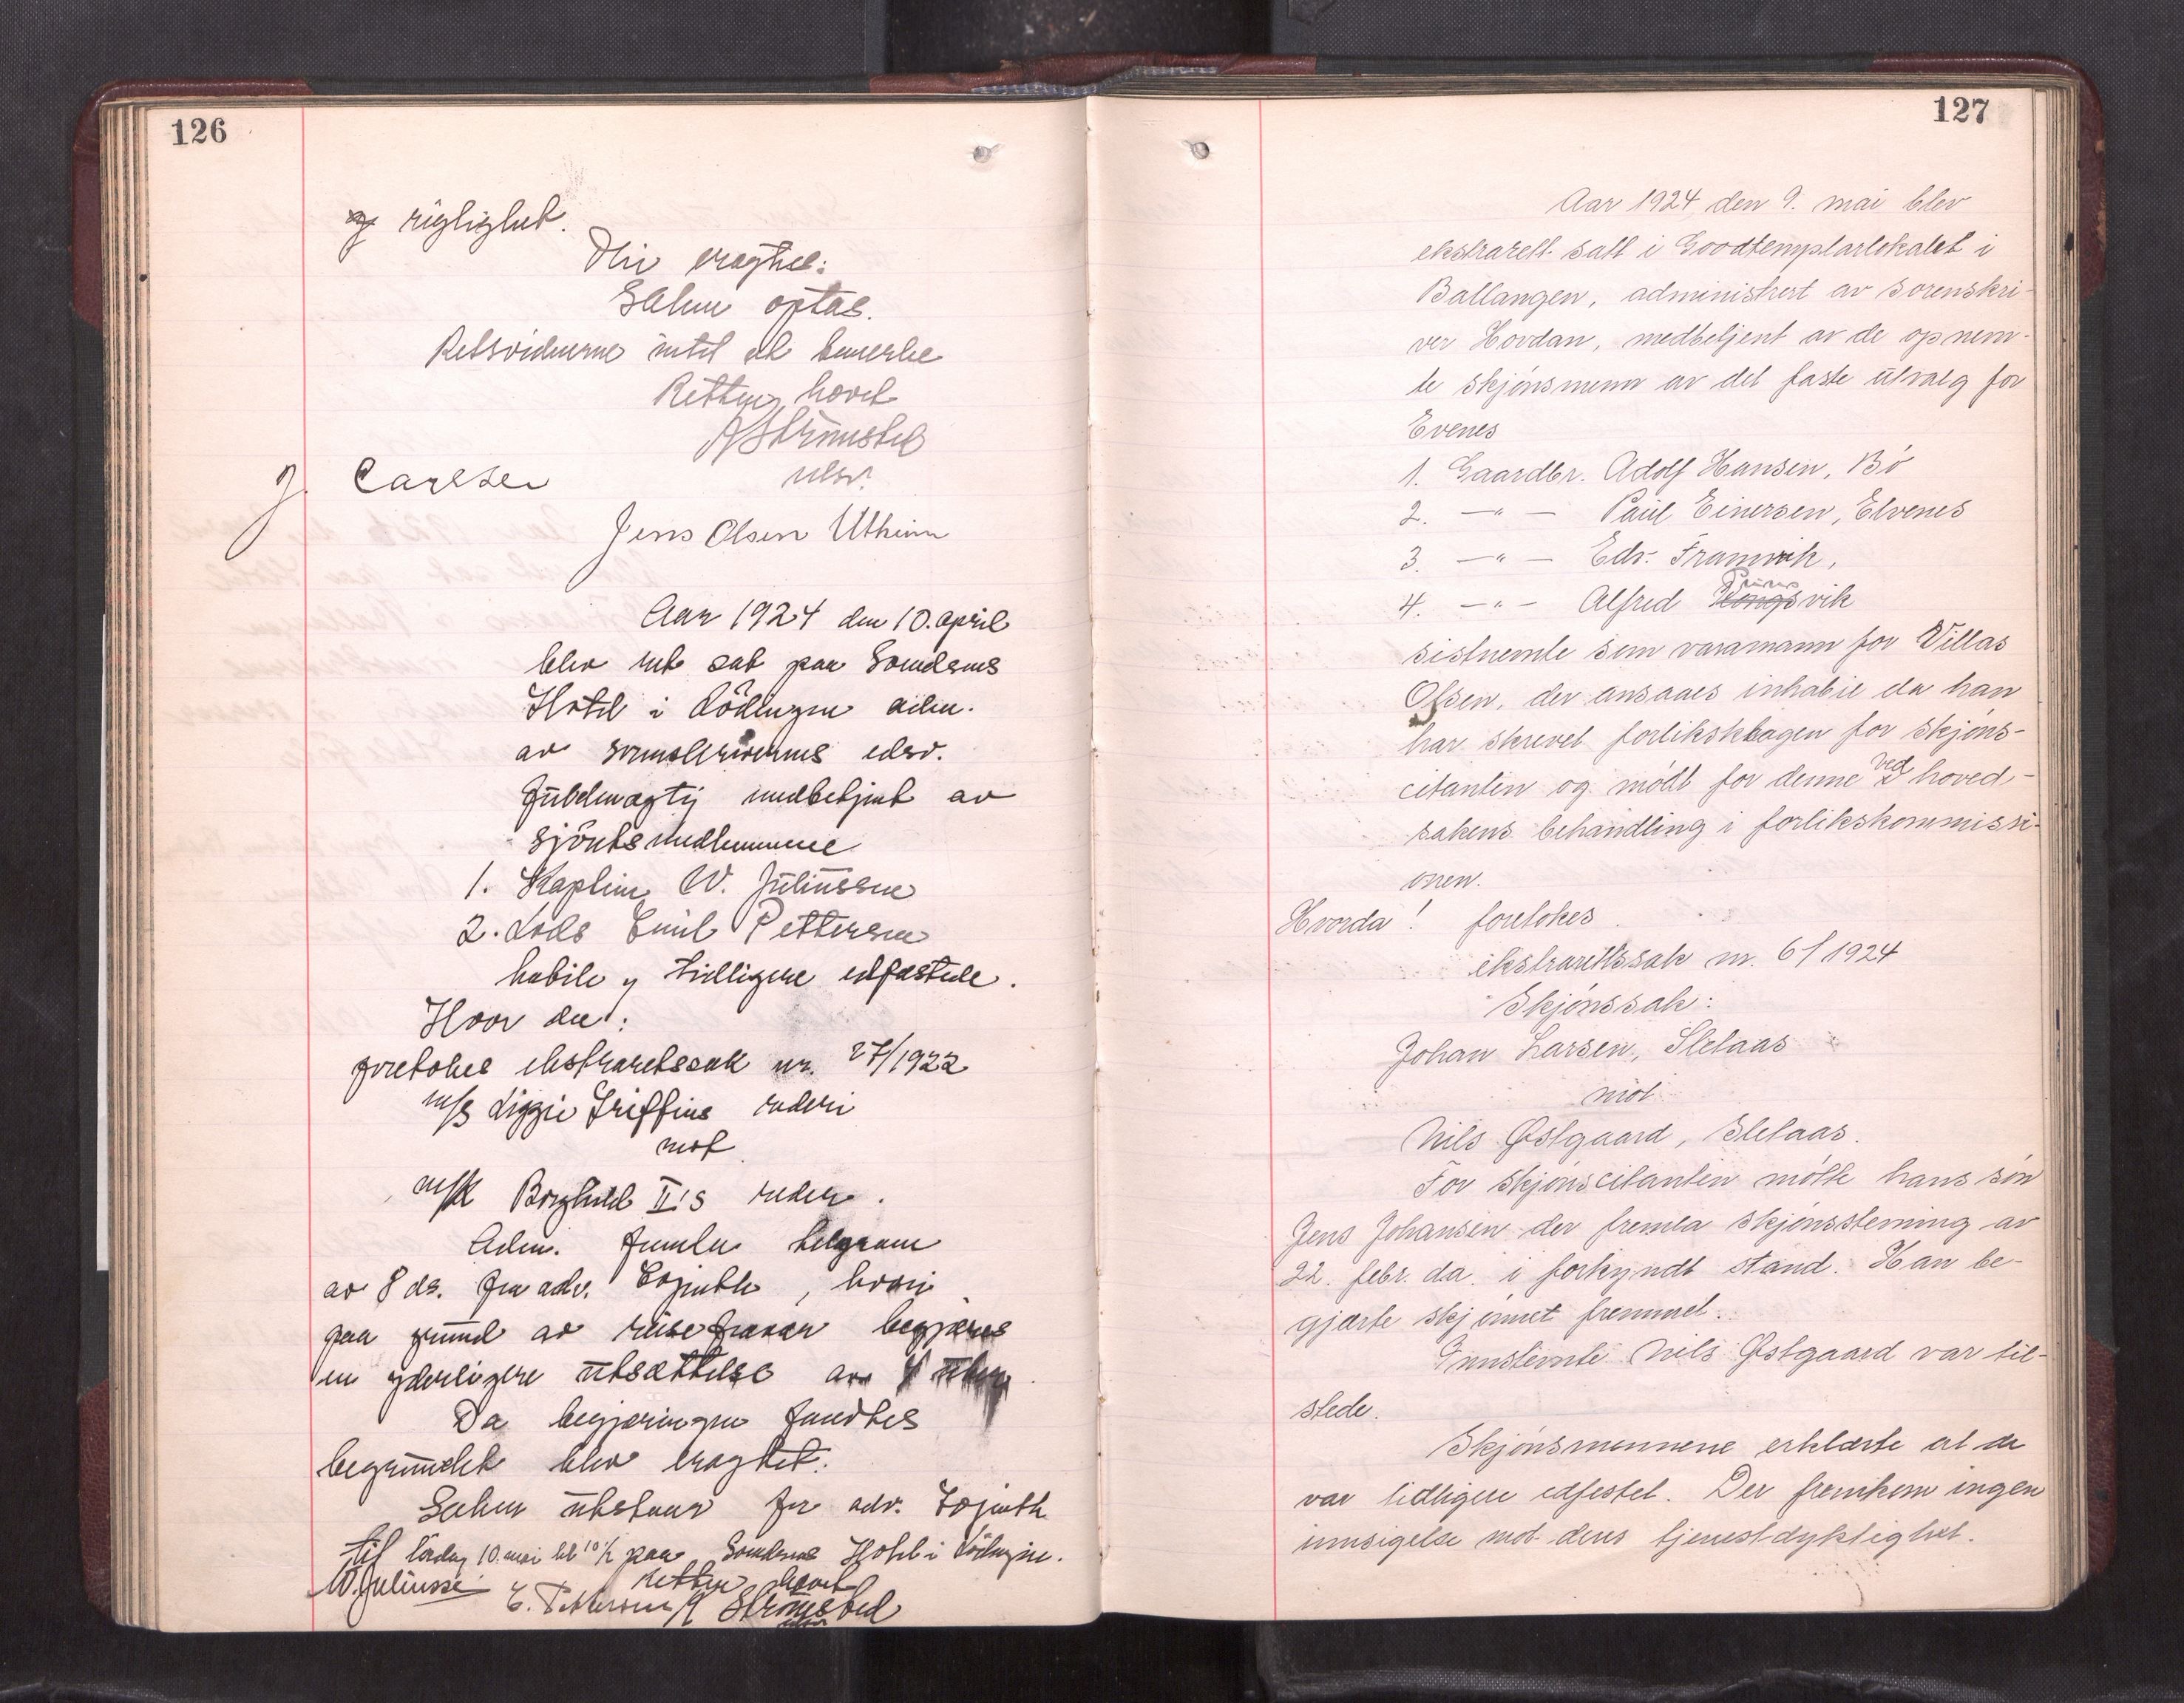 126
og rigtighet.
Blev eragtet:
Saken optas.
Retsvidnerne intet at bemerke
Retten hevet
A Strømsted
edsv.
J. Carlsen
Jens Olsen Utheim
Aar 1924 den 10. april
blev ret sat paa
Hotel i Lödingen adm.
av sorenskriverens edsv.
fuldmægtig medbetjent av
sjöretsmedlemmene
1. Kaptein W. Juliussen
2. Lods Emil Pettersen
habile og tidligere edfæstede.
Hvor da:
foretokes ekstraretssak nr. 27/1922
m/s Lizzie Griffins rederi
mot
m/k Borghild II's reder.
Adm. fremla telegram
av 8 ds. fra adv. , hvori
paa grund av reisefravær begjæres
en yderligere utsættelse av 4 uker
Da begjæringen fandtes
begrundet blev eragtet:
Saken utstaar for adv.
til lördag 10. mai kl 10½ paa Hotel i Lödingen.
Retten hevet
W. Juliussen
E. Pettersen A Strømsted
edsv
127
Aar 1924 den 9. mai blev
ekstrarett satt i Goodtemplarlokalet i
Ballangen, administrert av sorenskri-
ver Hovdan, medbetjent av de opnem-
te skjönsmenn av det faste utvalg for
Evenes
1. Gaardbr. Adolf Hansen, Bö
2. —"— Paul Einersen, Elvenes
3. —"— Edv. Framvik,
4. —"— Alfred vik
sistnemte som varamann for Villas
Olsen, der ansaaes inhabil da han
har skrevet forliksklagen for skjöns-
citanten og mödt for denne ved hoved-
sakens behandling i forlikskommissi-
onen.
Hvorda! foretokes
ekstrarettssak nr. 6/1924
Skjönssak:
Johan Larsen, Sletaas
mot
Nils Østgaard, Sletaas.
For skjönscitanten mötte hans sön
Jens Johansen der fremla skjönsstevning av
22. febr. da. i forkyndt stand. Han be-
gjærte skjönnet fremmet.
Innstevnte Nils Østgaard var til-
stede.
Skjönsmennene erklærte at de
var tidligere edfestet. Der fremkom ingen
innsigelse mot deres tjenestdyktighet.